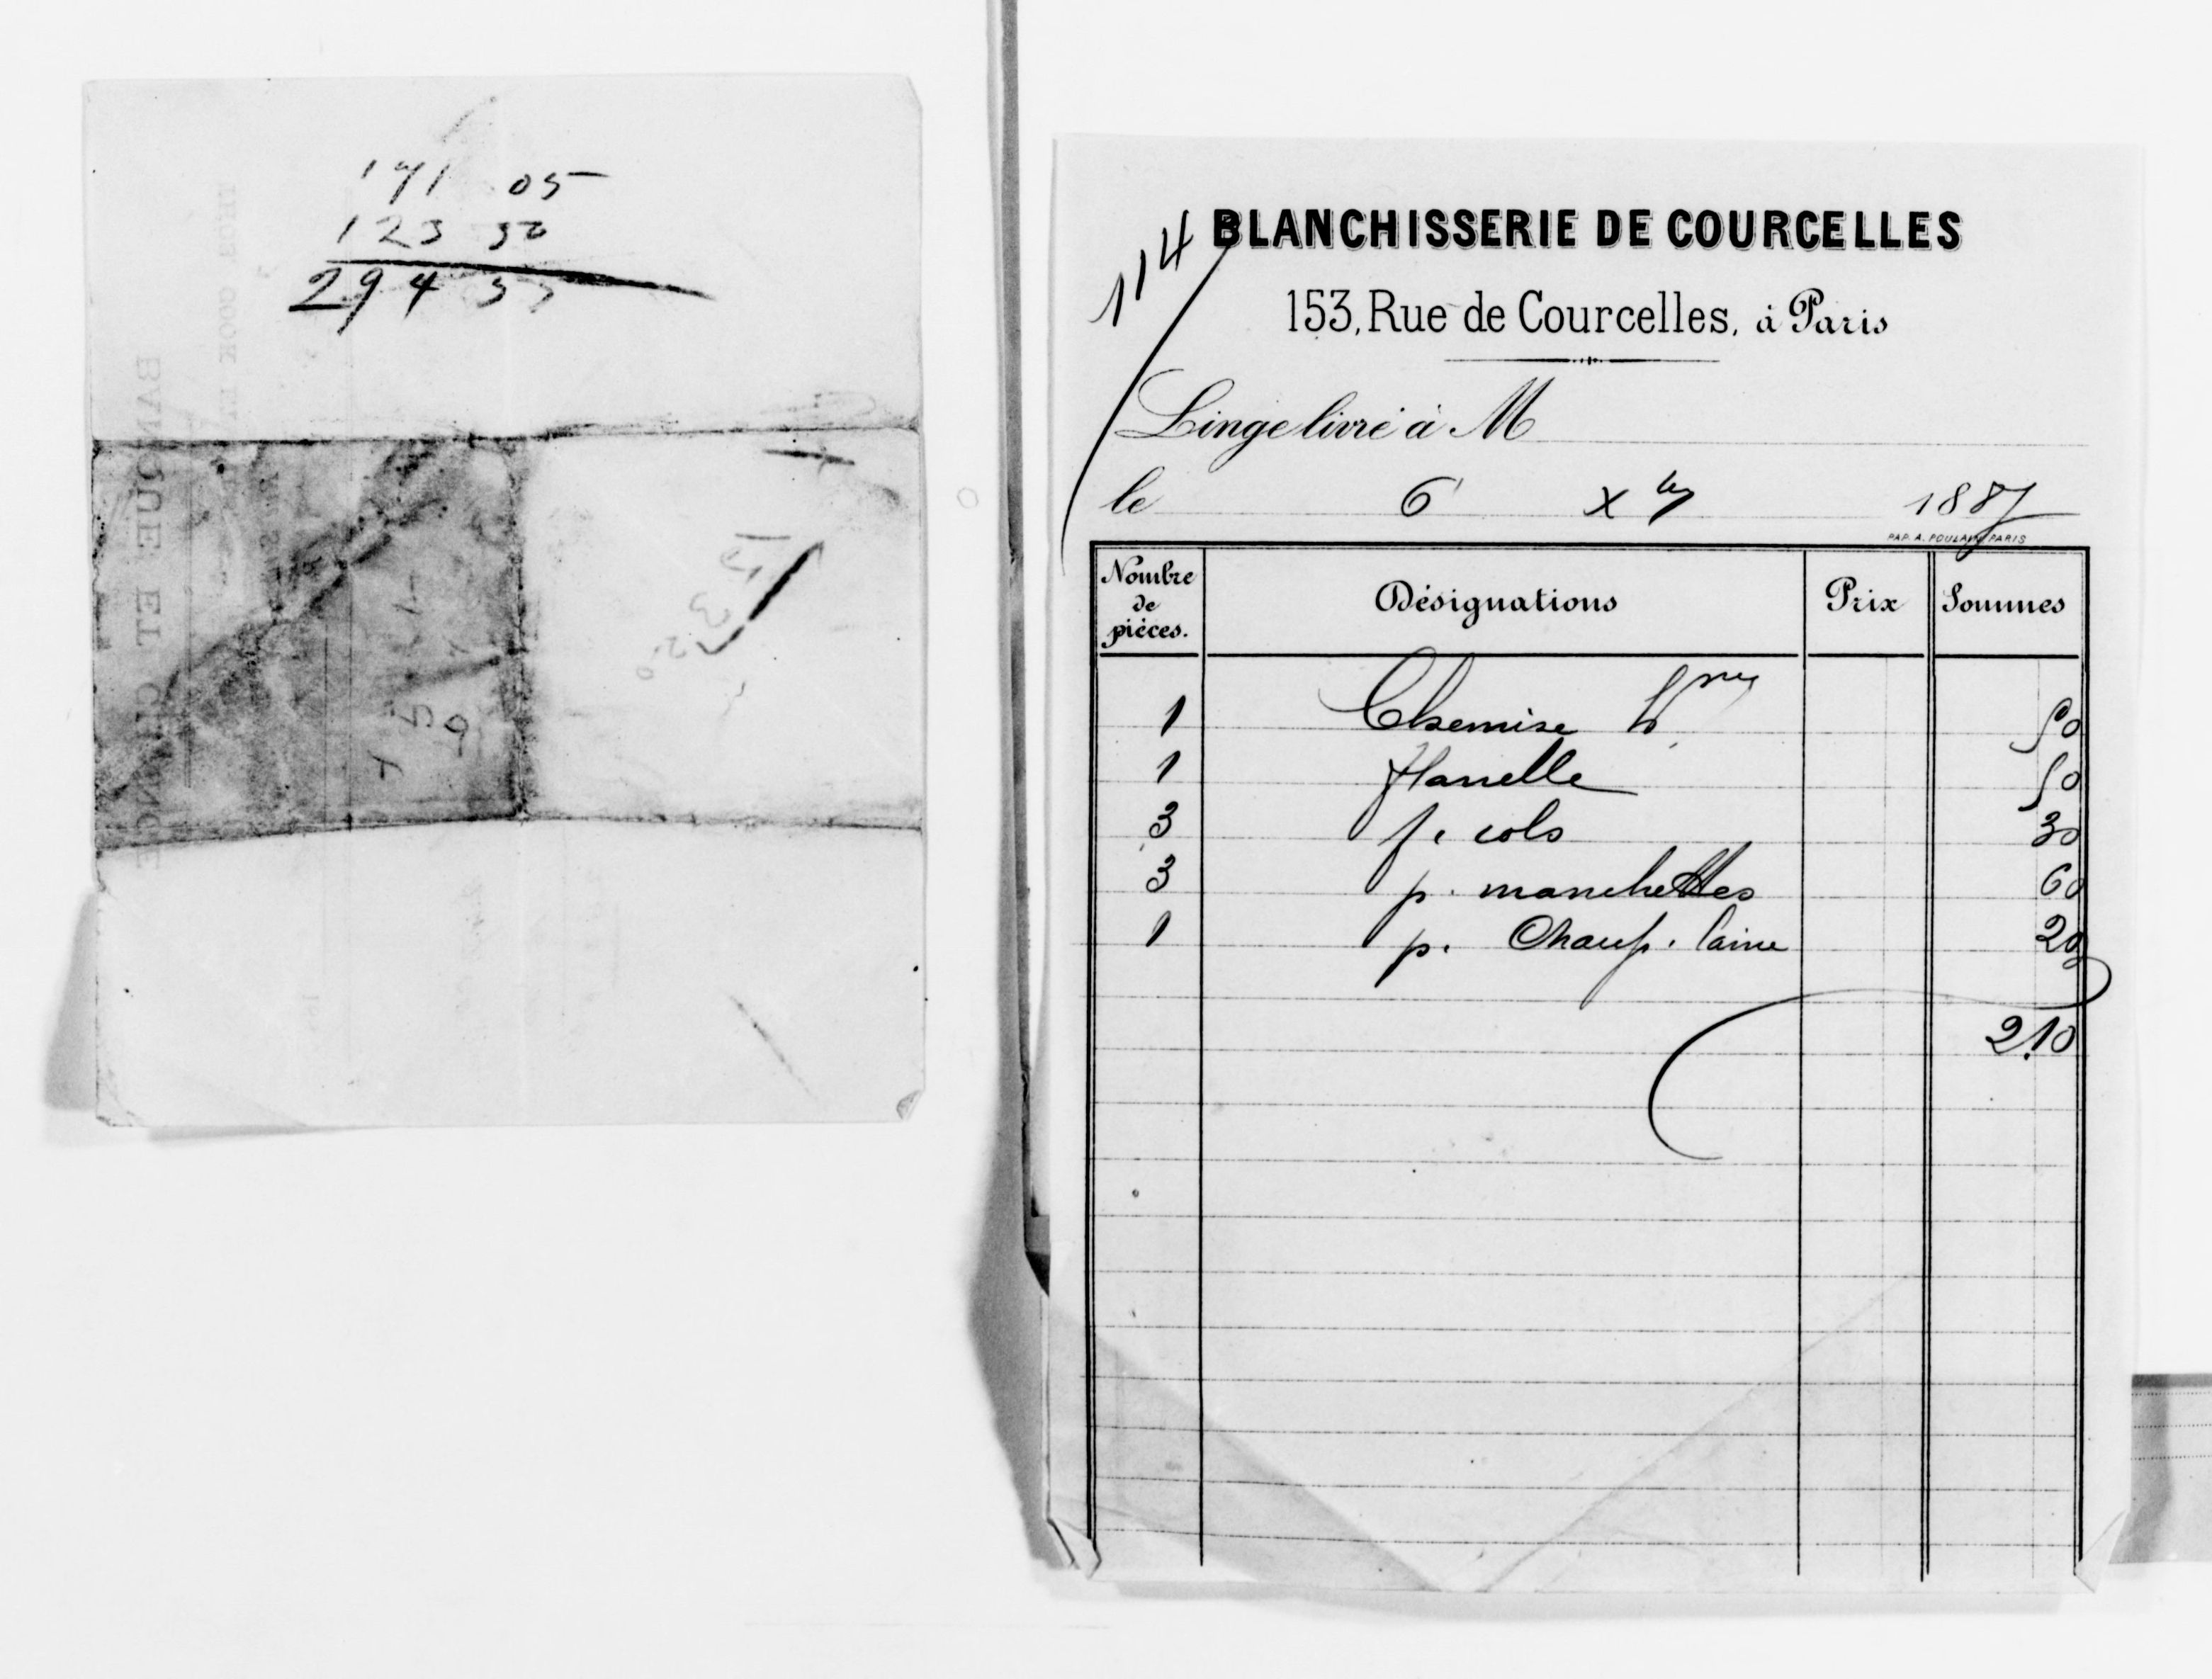 171 05
123 30
294 35
BANQUE ET CHANGE
114
BLANCHISSERIE DE COURCELLES
153, Rue de Courcelles, à Paris
Linge livré à M
le 6 Xbre 1887
PAP. A. POULAIN PARIS
Nombre de pièces. Désignations Prix Sommes
1 Chemise hme 50
1 flanelle 50
3 f. cols 30
3 p. manchettes 60
1 p. Chauss. laine 20
2.10